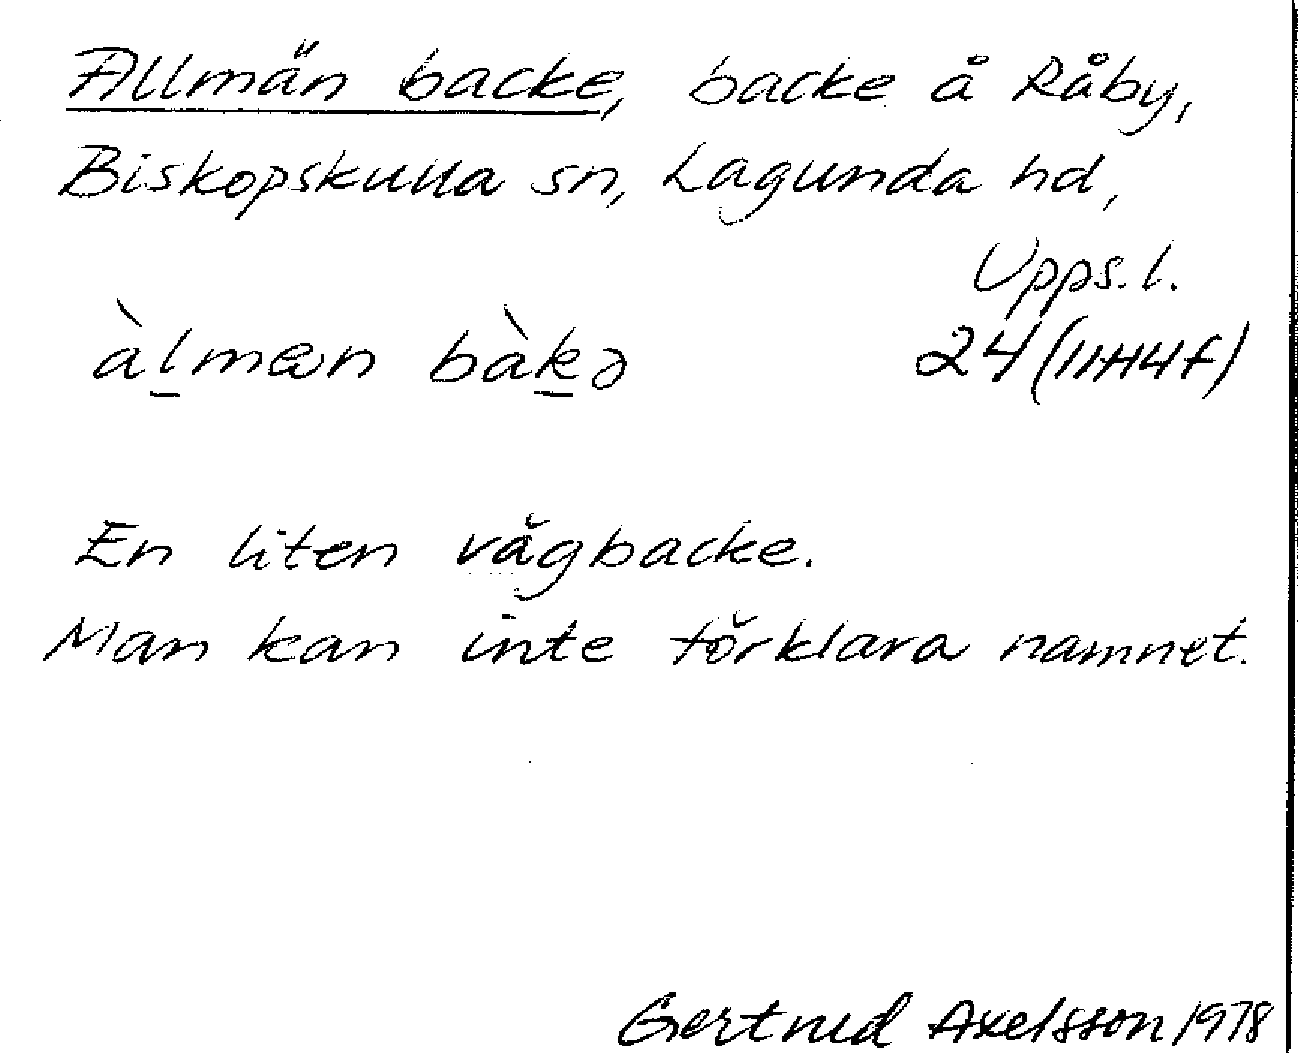 Allmän backe, backe å Råby,
Biskopskulla sn, Lagunda hd,
Upps. l.
àl̲mæn bàk̲ə 24 (11H4f)
En liten vägbacke.
Man kan inte förklara namnet.
Gertrud Axelsson 1978